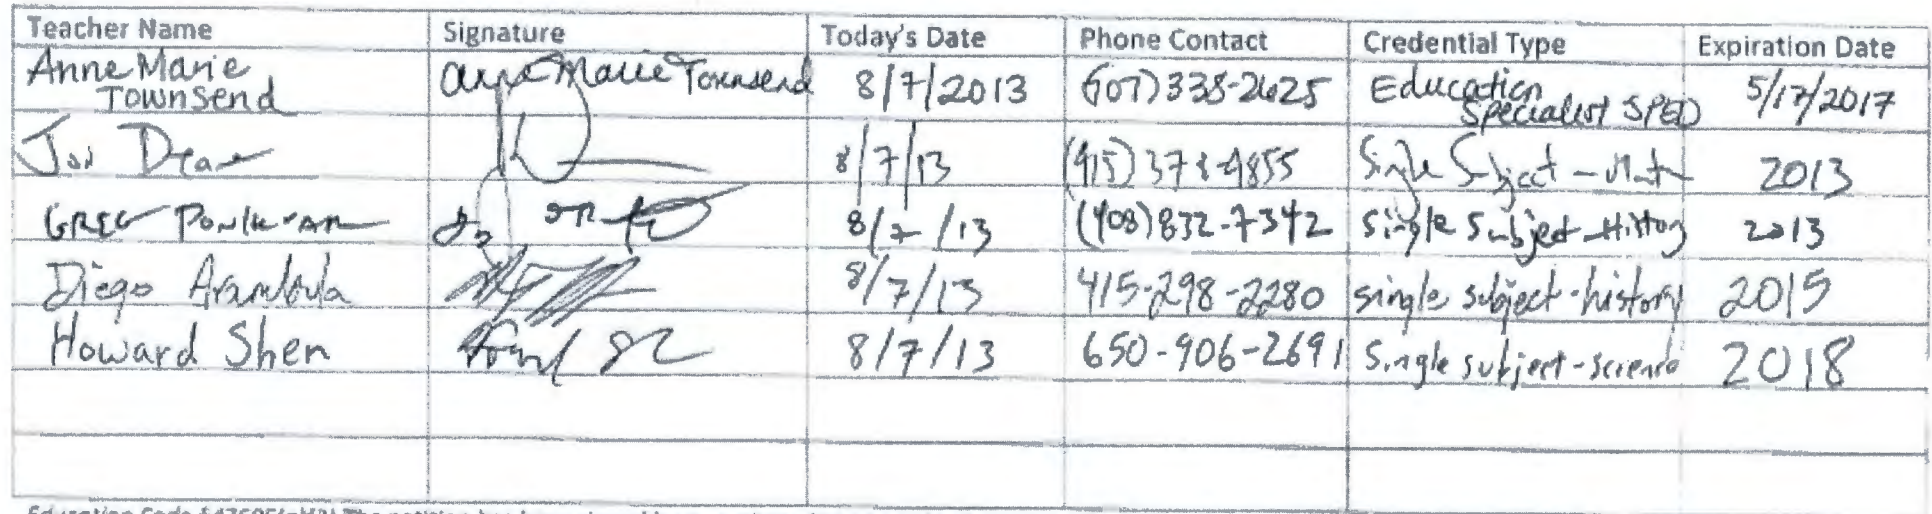 Teacher Name Signature Today's Date Phone Contact Credential Type Expiration Date
Anne Marie Townsend Anne Marie Townsend 8/7/2013 (607) 338-2625 Education Specialist SPED 5/17/2017
8/7/13 (415) 378-4855 Single Subject - Math 2013
GREG 8/7/13 (408) 832-7342 Single Subject - History 2013
Diego Arambula 8/7/13 415-298-2280 single subject-history 2015
Howard Shen 8/7/13 650-906-2691 Single subject-science 2018